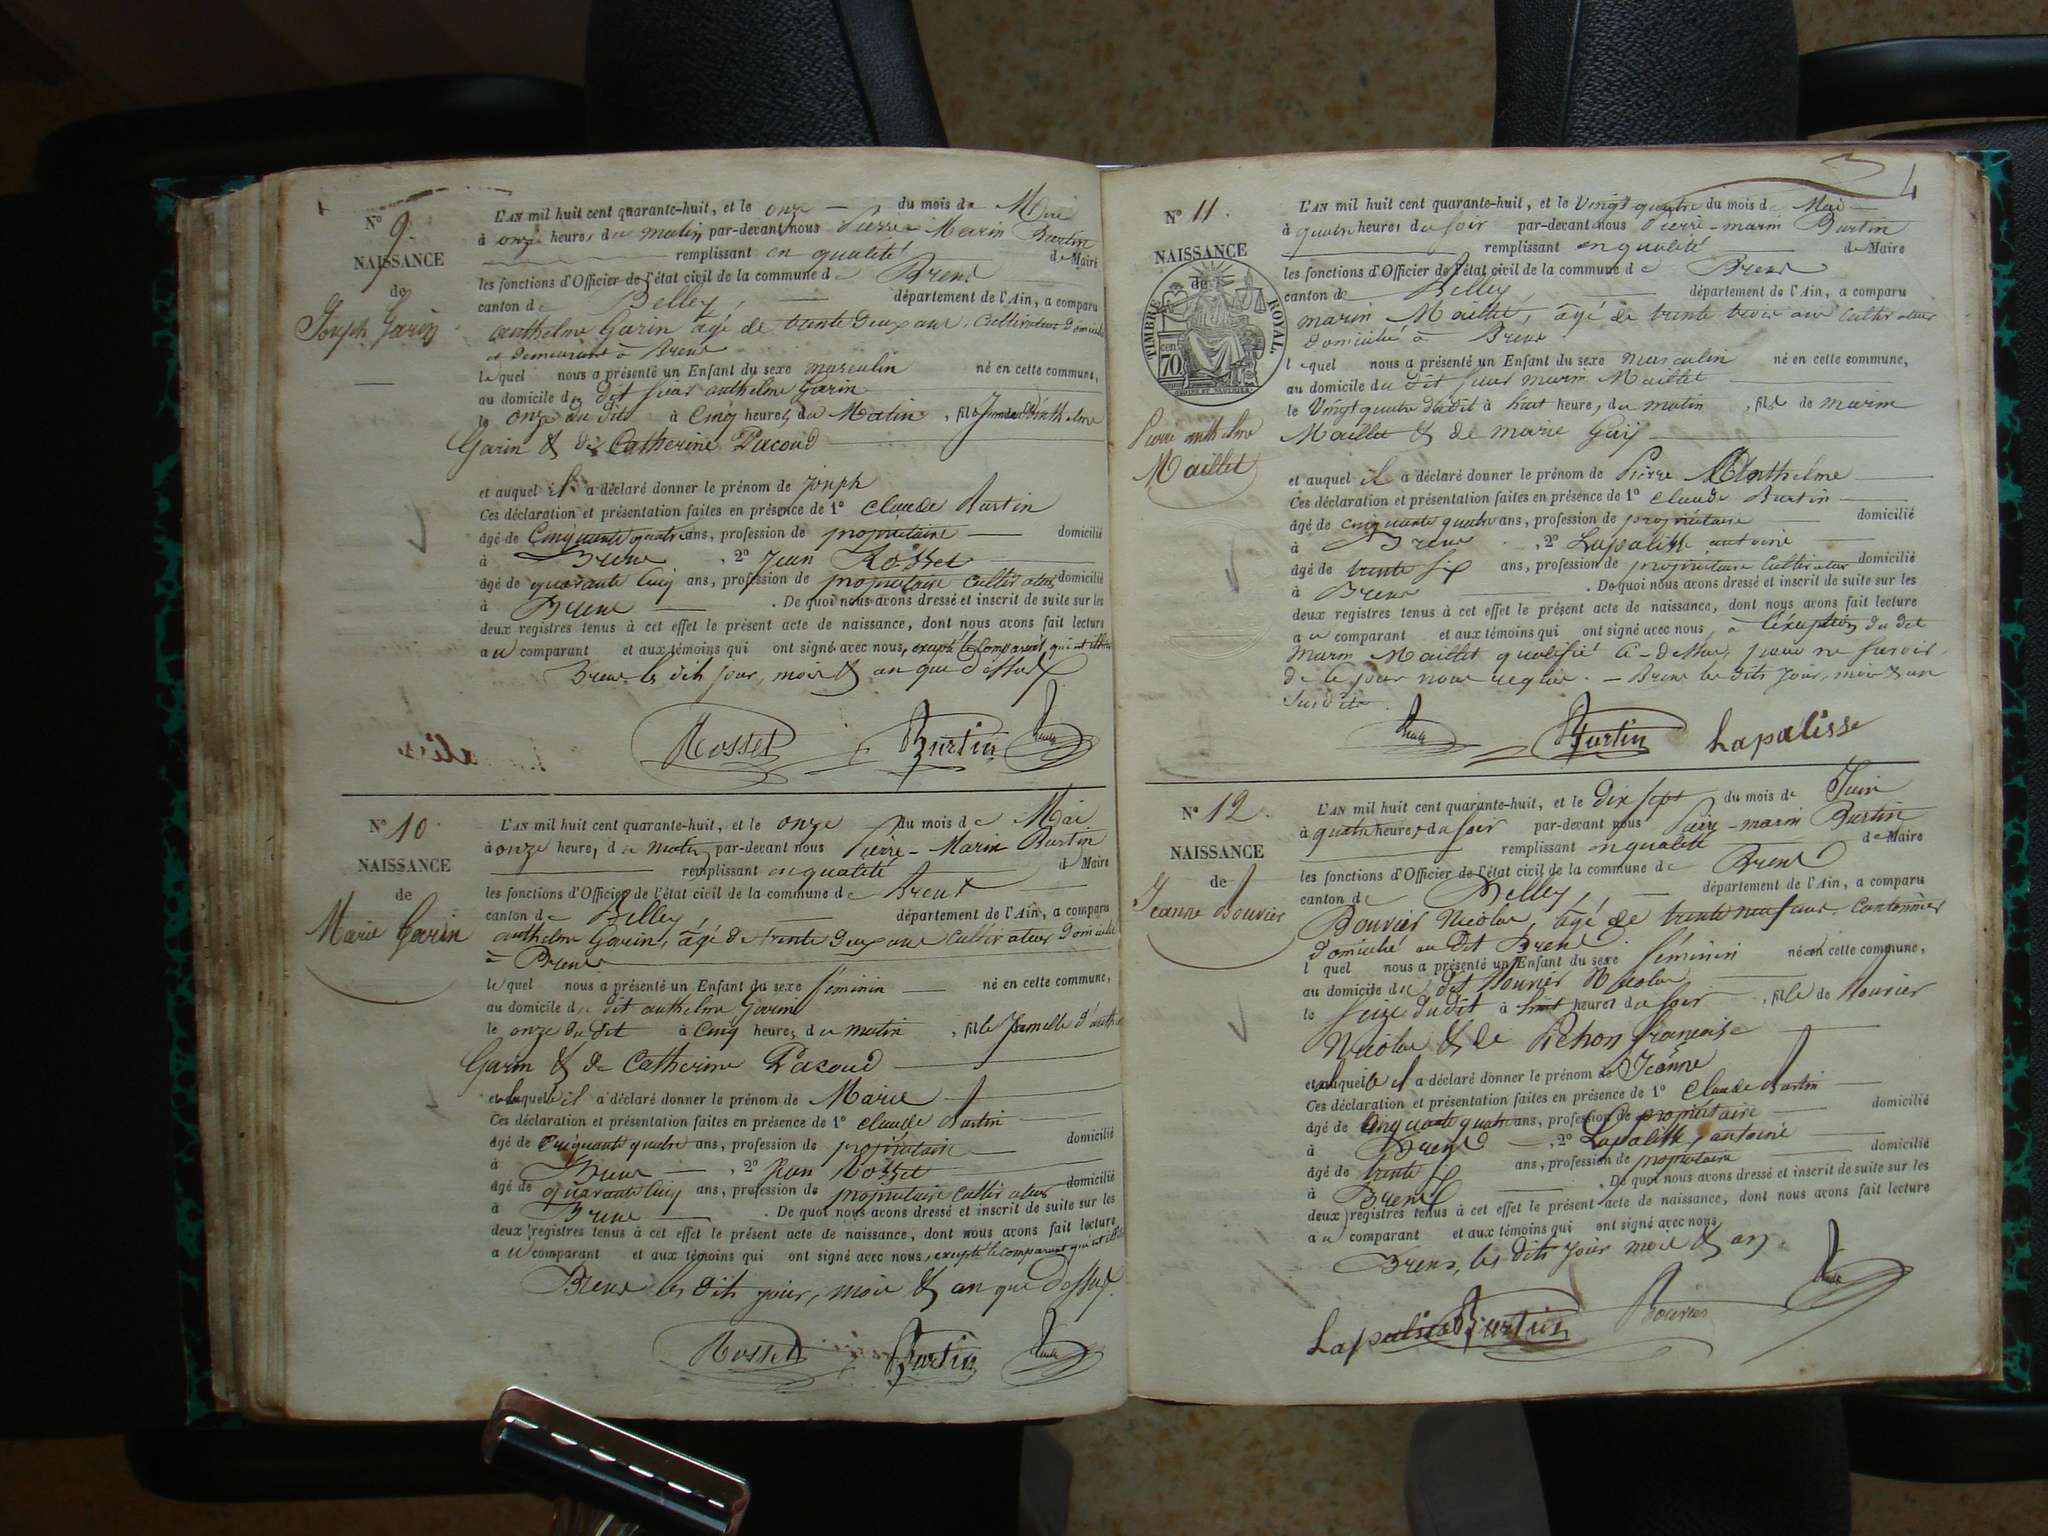 N° 9.
NAISSANCE
de
Joseph Garin
L'AN mil huit cent quarante-huit, et le onze du mois de Mai
à onze heures du matin par-devant nous Pierre Marin Burtin
remplissant en qualité de Maire
les fonctions d'Officier de l'état civil de la commune de Brens
canton de Belley, département de l'Ain, a comparu
anthelme Garin âgé de trente deux ans, Cultivateur Domicilié
et demeurant à Brens
lequel nous a présenté un Enfant du sexe masculin né en cette commune,
au domicile du dit sieur anthelme Garin
le onze du dit à Cinq heures du Matin, fils Jumeau d'anthelme
Garin & de Catherine Pacoud
et auquel il a déclaré donner le prénom de Joseph
Ces déclaration et présentation faites en présence de 1° Claude Burtin
âgé de Cinquante quatre ans, profession de propriétaire domicilié
à Brens, 2° Jean Rosset
âgé de quarante Cinq ans, profession de propriétaire Cultivateur domicilié
à Brens. De quoi nous avons dressé et inscrit de suite sur les
deux registres tenus à cet effet le présent acte de naissance, dont nous avons fait lecture
au comparant et aux témoins qui ont signé avec nous, excepté le Comparant qui est illitéré
Brens les dits jour, mois & an que dessus
Rosset Burtin
N° 10.
NAISSANCE
de
Marie Garin
L'AN mil huit cent quarante-huit, et le onze du mois de Mai
à onze heures, du matin par-devant nous Pierre-Marin Burtin
remplissant en qualité de Maire
les fonctions d'Officier de l'état civil de la commune de Brens
canton de Belley département de l'Ain, a comparu
anthelme Garin, âgé de trente Deux ans Cultivateur Domicilié
à Brens
lequel nous a présenté un Enfant du sexe féminin né en cette commune,
au domicile du dit anthelme Garin
le onze du dit à Cinq heures du matin, fille Jumelle d'anthelme
Garin & de Catherine Pacoud
et auquel il a déclaré donner le prénom de Marie
Ces déclaration et présentation faites en présence de 1° Claude Burtin
âgé de Cinquante quatre ans, profession de propriétaire domicilié
à Brens, 2° Jean Rosset
âgé de quarante Cinq ans, profession de propriétaire Cultivateur domicilié
à Brens. De quoi nous avons dressé et inscrit de suite sur les
deux registres tenus à cet effet le présent acte de naissance, dont nous avons fait lecture
au comparant et aux témoins qui ont signé avec nous, excepté le comparant qui est
Brens les dits jour, mois & an que dessus.
Rosset Burtin
4
N° 11.
NAISSANCE
de
TIMBRE ROYAL.
70 cent
Pierre anthelme
Maillet
L'AN mil huit cent quarante-huit, et le Vingt quatre du mois de Mai
à quatre heures du soir par-devant nous Pierre-marin Burtin
remplissant en qualité de Maire
les fonctions d'Officier de l'état civil de la commune de Brens
canton de Belley, département de l'Ain, a comparu
marin Maillet, âgé de trente trois ans Cultivateur
domicilié à Brens
lequel nous a présenté un Enfant du sexe masculin né en cette commune,
au domicile du dit sieur marin Maillet
le Vingt quatre du dit à huit heures, du matin, fils de marin
Maillet & de marie Guy
et auquel il a déclaré donner le prénom de Pierre Anthelme
Ces déclaration et présentation faites en présence de 1° Claude Burtin
âgé de cinquante quatre ans, profession de propriétaire domicilié
à Brens, 2° Lapalisse antoine
âgé de trente six ans, profession de propriétaire Cultivateur domicilié
à Brens. De quoi nous avons dressé et inscrit de suite sur les
deux registres tenus à cet effet le présent acte de naissance, dont nous avons fait lecture
au comparant et aux témoins qui ont signé avec nous, à l'éxception du dit
marin Maillet qualifié Ci-dessus, pour ne savoir
de ce jour nous requis. - Brens les dits jour, mois & an
susdits.
Burtin Lapalisse
N° 12.
NAISSANCE
de
Jeanne Bouvier
L'AN mil huit cent quarante-huit, et le Dix sept du mois de Juin
à quatre heures du soir par-devant nous Pierre-marin Burtin
remplissant en qualité de Maire
les fonctions d'Officier de l'état civil de la commune de Brens
canton de Belley, département de l'Ain, a comparu
Bouvier Nicolas, âgé de trente neuf ans, Cantonnier
domicilié au dit Brens.
lequel nous a présenté un Enfant du sexe féminin né en cette commune,
au domicile du dit Bouvier Nicolas
le seize du dit à huit heures du soir, fille de Bouvier
Nicolas & de Pichon françoise
et auquelle il a déclaré donner le prénom de Jeanne
Ces déclaration et présentation faites en présence de 1° Claude Burtin
âgé de Cinquante quatre ans, profession de propriétaire domicilié
à Brens, 2° Lapalisse, antoine
âgé de trente six ans, profession de propriétaire domicilié
à Brens. De quoi nous avons dressé et inscrit de suite sur les
deux registres tenus à cet effet le présent acte de naissance, dont nous avons fait lecture
au comparant et aux témoins qui ont signé avec nous
Brens, les dits jour mois & an.
Lapalisse Burtin Bouvier